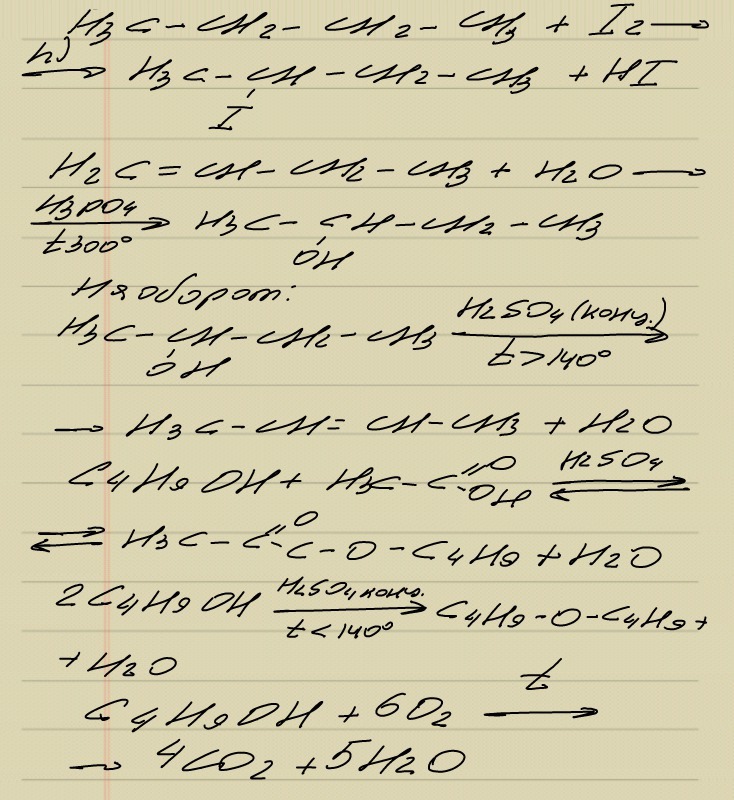 H3C - CH2 - CH2 - CH3 + I2 →
hν → H3C - CH - CH2 - CH3 + HI
I
H2C = CH - CH2 - CH3 + H2O →
H3PO4
→ H3C - CH - CH2 - CH3
t 300°
OH
Наоборот:
H3C - CH - CH2 - CH3 H2SO4 (конц.) →
OH t > 140°
→ H3C - CH = CH - CH3 + H2O
C4H9OH + H3C - C =O -OH H2SO4 ⇄
⇄ H3C - C =O C - O - C4H9 + H2O
2C4H9OH H2SO4 конц. → C4H9 - O - C4H9 +
t < 140°
+ H2O
C4H9OH + 6O2 t →
→ 4CO2 + 5H2O